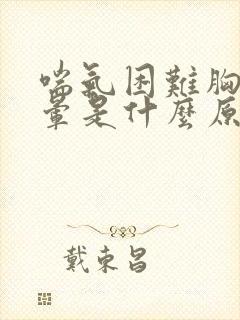 喘氣困難胸
暈是什麼原
戴東昌